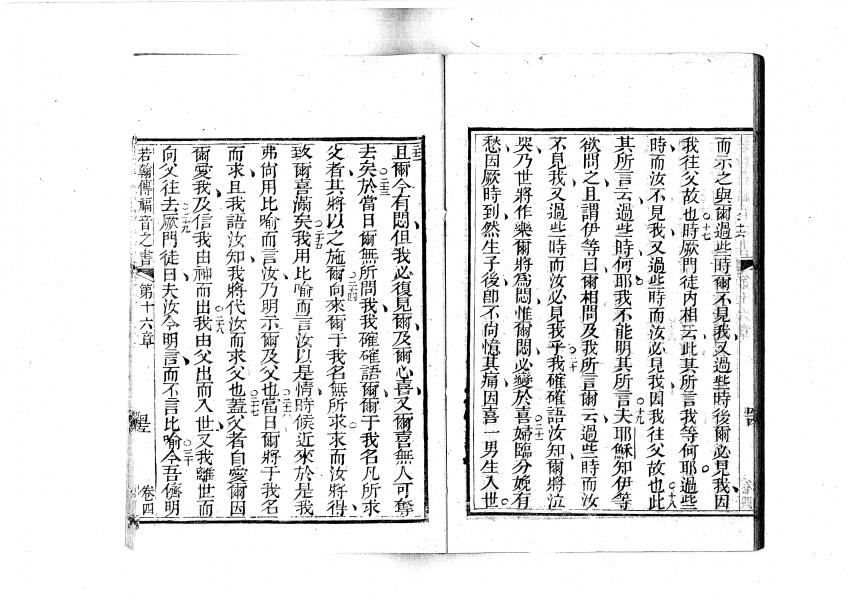 而示之與爾過些時爾不見我又過些時後爾必見我因
十七
我往父故也時厥門徒內相云此其所言我等何耶過些
十八
時而汝不見我又過些時而汝必見我因我往父故也此
十九
其所言云過些時何耶我不能明其所言夫耶穌知伊等
欲問之且謂伊等曰爾相問及我所言爾云過些時而汝
二十
不見我又過些時而汝必見我乎我確確語汝知爾將泣
哭乃世將作樂爾將為悶惟爾悶必變於喜婦臨分娩有
二十一
愁因厥時到然生子後卽不尙憶其痛因喜一男生入世
且爾今有悶但我必復見爾及爾心喜又爾喜無人可奪
二十三
去矣於當日爾無所問我我確確語爾爾于我名凡所求
二十四
父者其將以之施爾向來爾于我名無所求求而汝將得
二十五
致爾喜滿矣我用比喻而言汝以是情時候近來於是我
二十六
弗尙用比喻而言汝乃明示爾及父也當日爾將于我名
二十七
而求且我語汝知我將代汝而求父也蓋父者自愛爾因
二十八
爾愛我及信我由神而出我由父出而入世又我離世而
二十九
向父往去厥門徒曰夫汝今明言而不言比喻今吾儕明
三十
若翰傳福音之書 第十六章 卷四